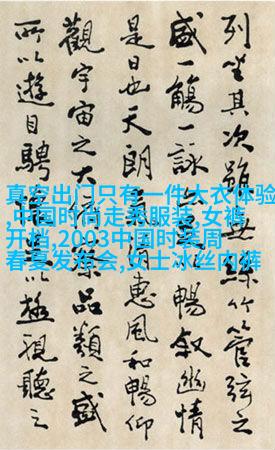 列坐其次雖無絲竹管弦之
盛一觴一詠暢叙幽情
是日也天朗惠風和暢仰
觀宇宙之大品類之盛
所以遊目騁以極視聽之
真空出门只有一件大衣体验
,中国时尚走秀服装,女裤
开裆,2003中国时装周
春夏发布会,女士冰丝内裤